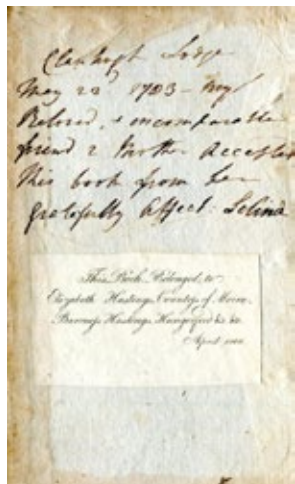 Lodge
May 22 1783 - My
Beloved, & incomparable
friend & Mother accepted
this book from her
gratefully affect: Selina
This Book Belonged to
Elizabeth Hastings, Countess of Moira,
Baroness Hastings Hungerford &c &c
April